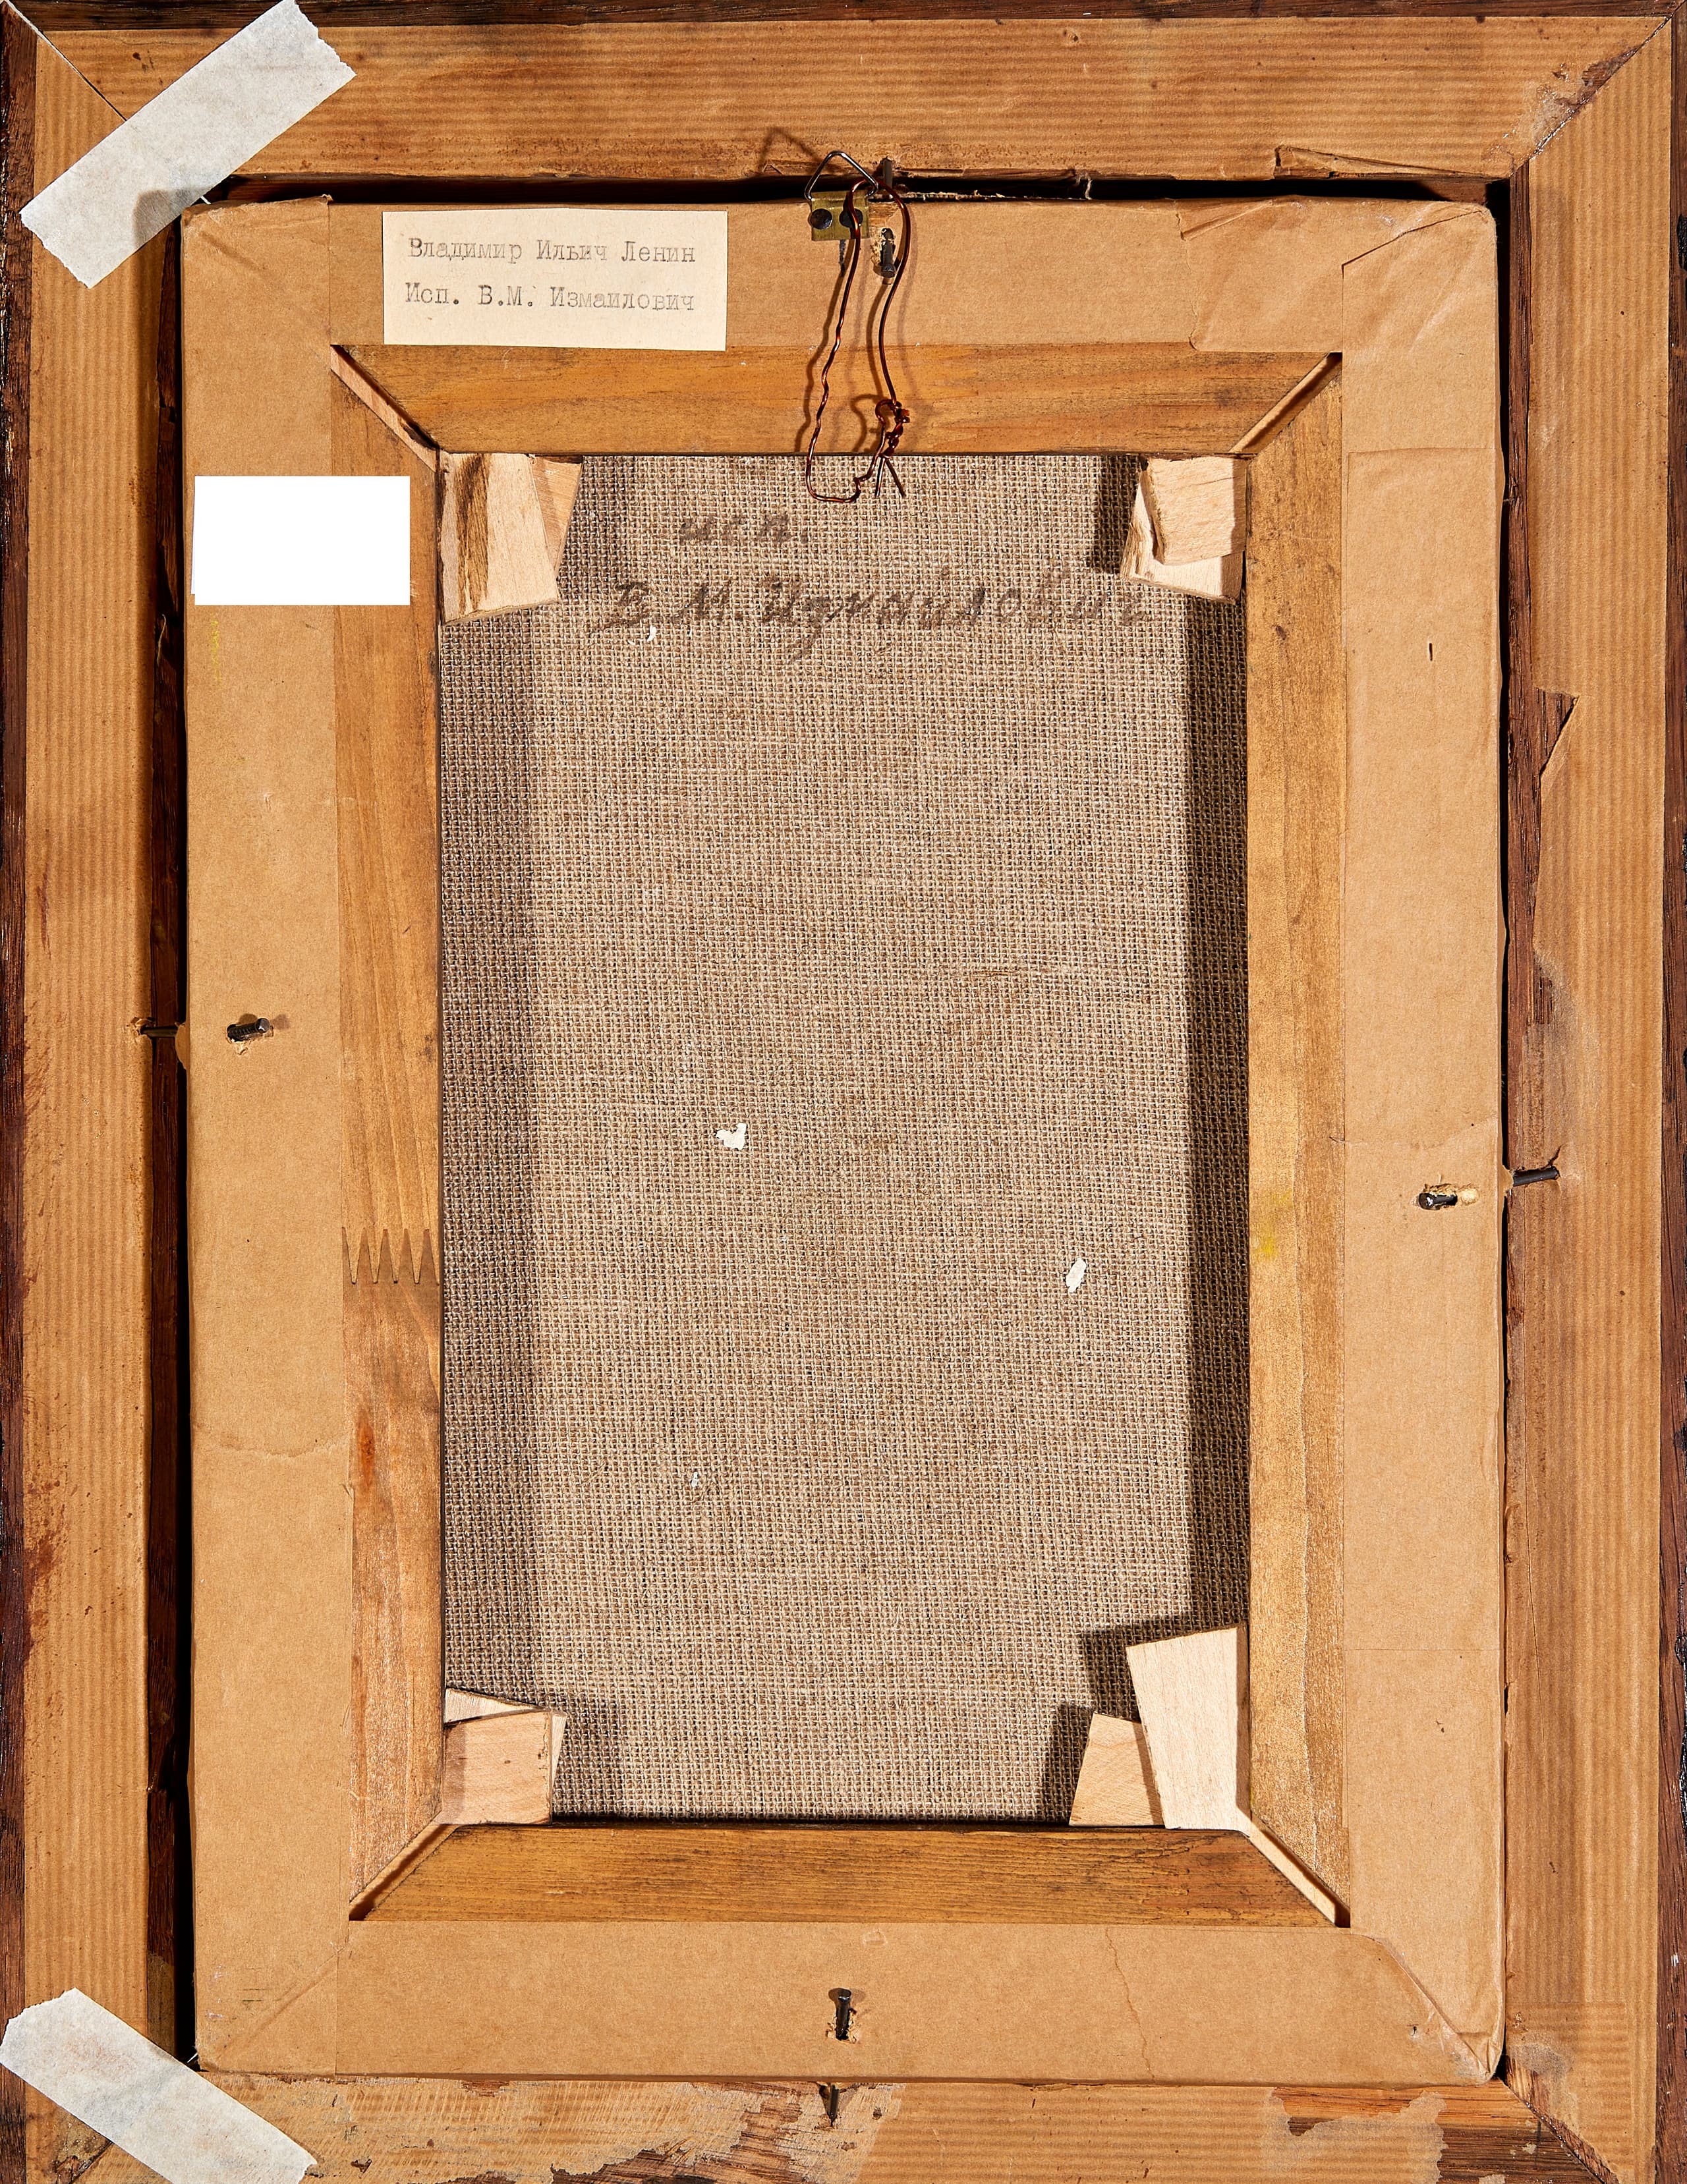 Владимир Ильич Ленин
Исп. В.М. Измаилович
исп.
В.М. Измаилович